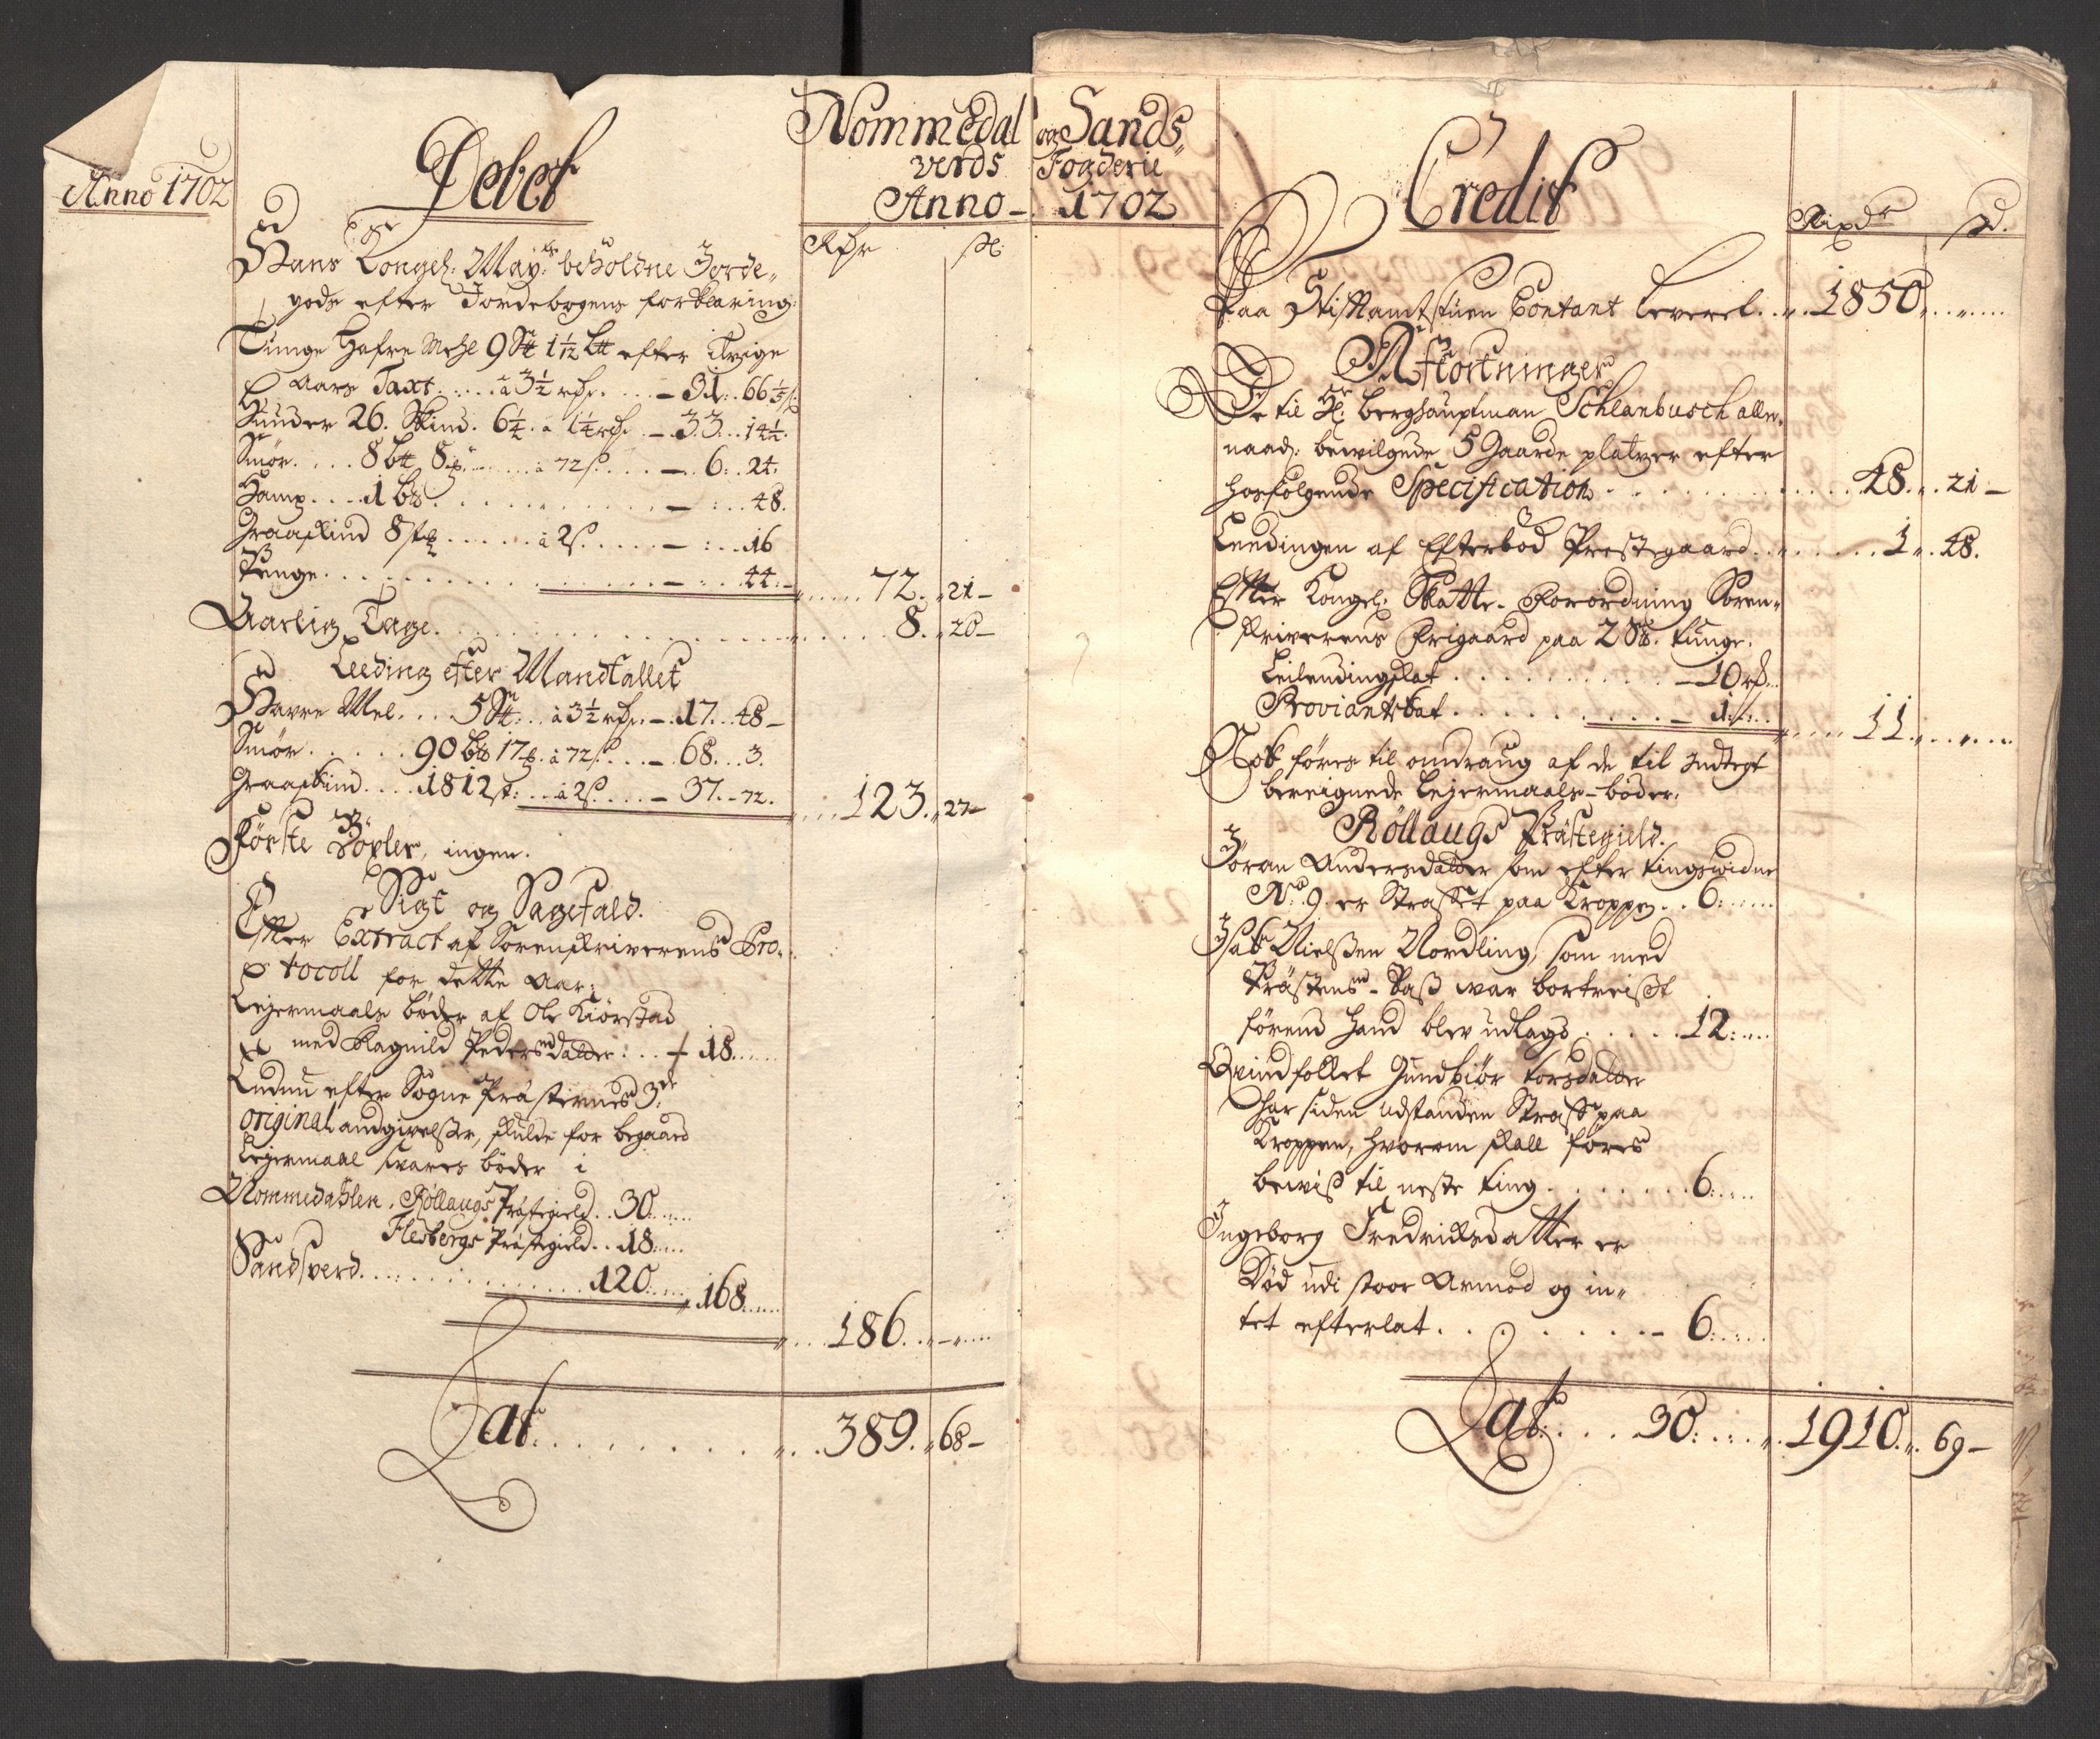 Anno 1702
Debet
Nommedal og Sands,,
verds Fogderie
Anno - 1702
Rdr ß:
Hans Kongel: May: beholdne Jorde,,
gods efter Jordebogens forklaring:
Tunge Hafre Mehl 9 S 1 1/12 L efter
Aars Taxt .... à 3½ rdr. ... - 31: 66
Huuder 26. Skind. 6½ à 1¼ rdr. - 33.. 14½.
Smør .... 8 b 8 ... à 72 ß ... - 6: 24.
Hamp .... 1 b ........ - : .. 48.
Graaskind 8 st ..... à 2 ß ..... - : .. 16
Penge ............ - : .. 44: -
72. ,, 21 -
Aarlig Tage ........ 8. ,, 20 -
Leeding efter Mandtallet
Hafre Mel .... 5 S: .. à 3½ rdr. - 17.. 48 -
Smør ..... 90 b 17 à 72 ß ... - 68... 3.
Graaskind .... 1812 st: .. à 2 ß .... - 37. - 72.
123. ,, 27 -
Förste Böxler, ingen.
Sigt og Sagefald.
Efter Extract af Sorenskriverens Pro-
tocoll for dette Aar:
Lejermaals böder af Ole Kiörstad
med Ragnild Pedersdatter ... + 18.....
Endnu efter Sogne Præsternes 3de
original andgivelser, skulde for begaaed
Lejermaal svares böder i
Nommedahlen, Röllaugs Præstegield .. 30.....
Flesbergs Præstegield .. 18.....
Sandsverd ........... 120.....
168.....
186. ,, - ,, ....
Lat: ........ 389. ,, 68 -
Credit
Rixdr ß.
Paa Stiftamtstuen Contant leveret .. ,, . 1850 ,, ..
Afkortninger
De til H: berghauptman Schlanbusch aller,,
naad: bevilgede 5 Gaarde platzer efter
hosfølgende Specification ............ 48. ,, 21 -
Leedingen af Efterbod Præstegaard ....... 1 ,, 48.
Efter Kongel: Skatte-Forordning Soren,,
skriverens Frigaard paa 2 S. tunge.
Leilendingskat .......... - 10 rdr...
Proviantskat ......... - 1: ...
11 ,, ...
Nok föres til omdraug af de til Indtegt
bereignede Lejermaals-böder.
Röllaugs Præstegield.
Jöran Andersdatter som efter tingsvidne
No. 9. er Straffet paa Kroppen .. 6: ....
Isak Nielßen Nordling, som med
Præstens-Pass war bortreißt
förend hand blev udlagd ..... 12: ...
Qvindfolket Gundbiör torsdatter
har siden udstanden Straff paa
Kroppen, hvorom skall föres
beviß til neste ting ....... 6: ....
Ingeborg Fredrichsdatter er
Död udi stoor Armod og in,,
tet efterlat ........ - 6: ....
Lat: ... 30: .. ,, .. 1910. ,, 69 -